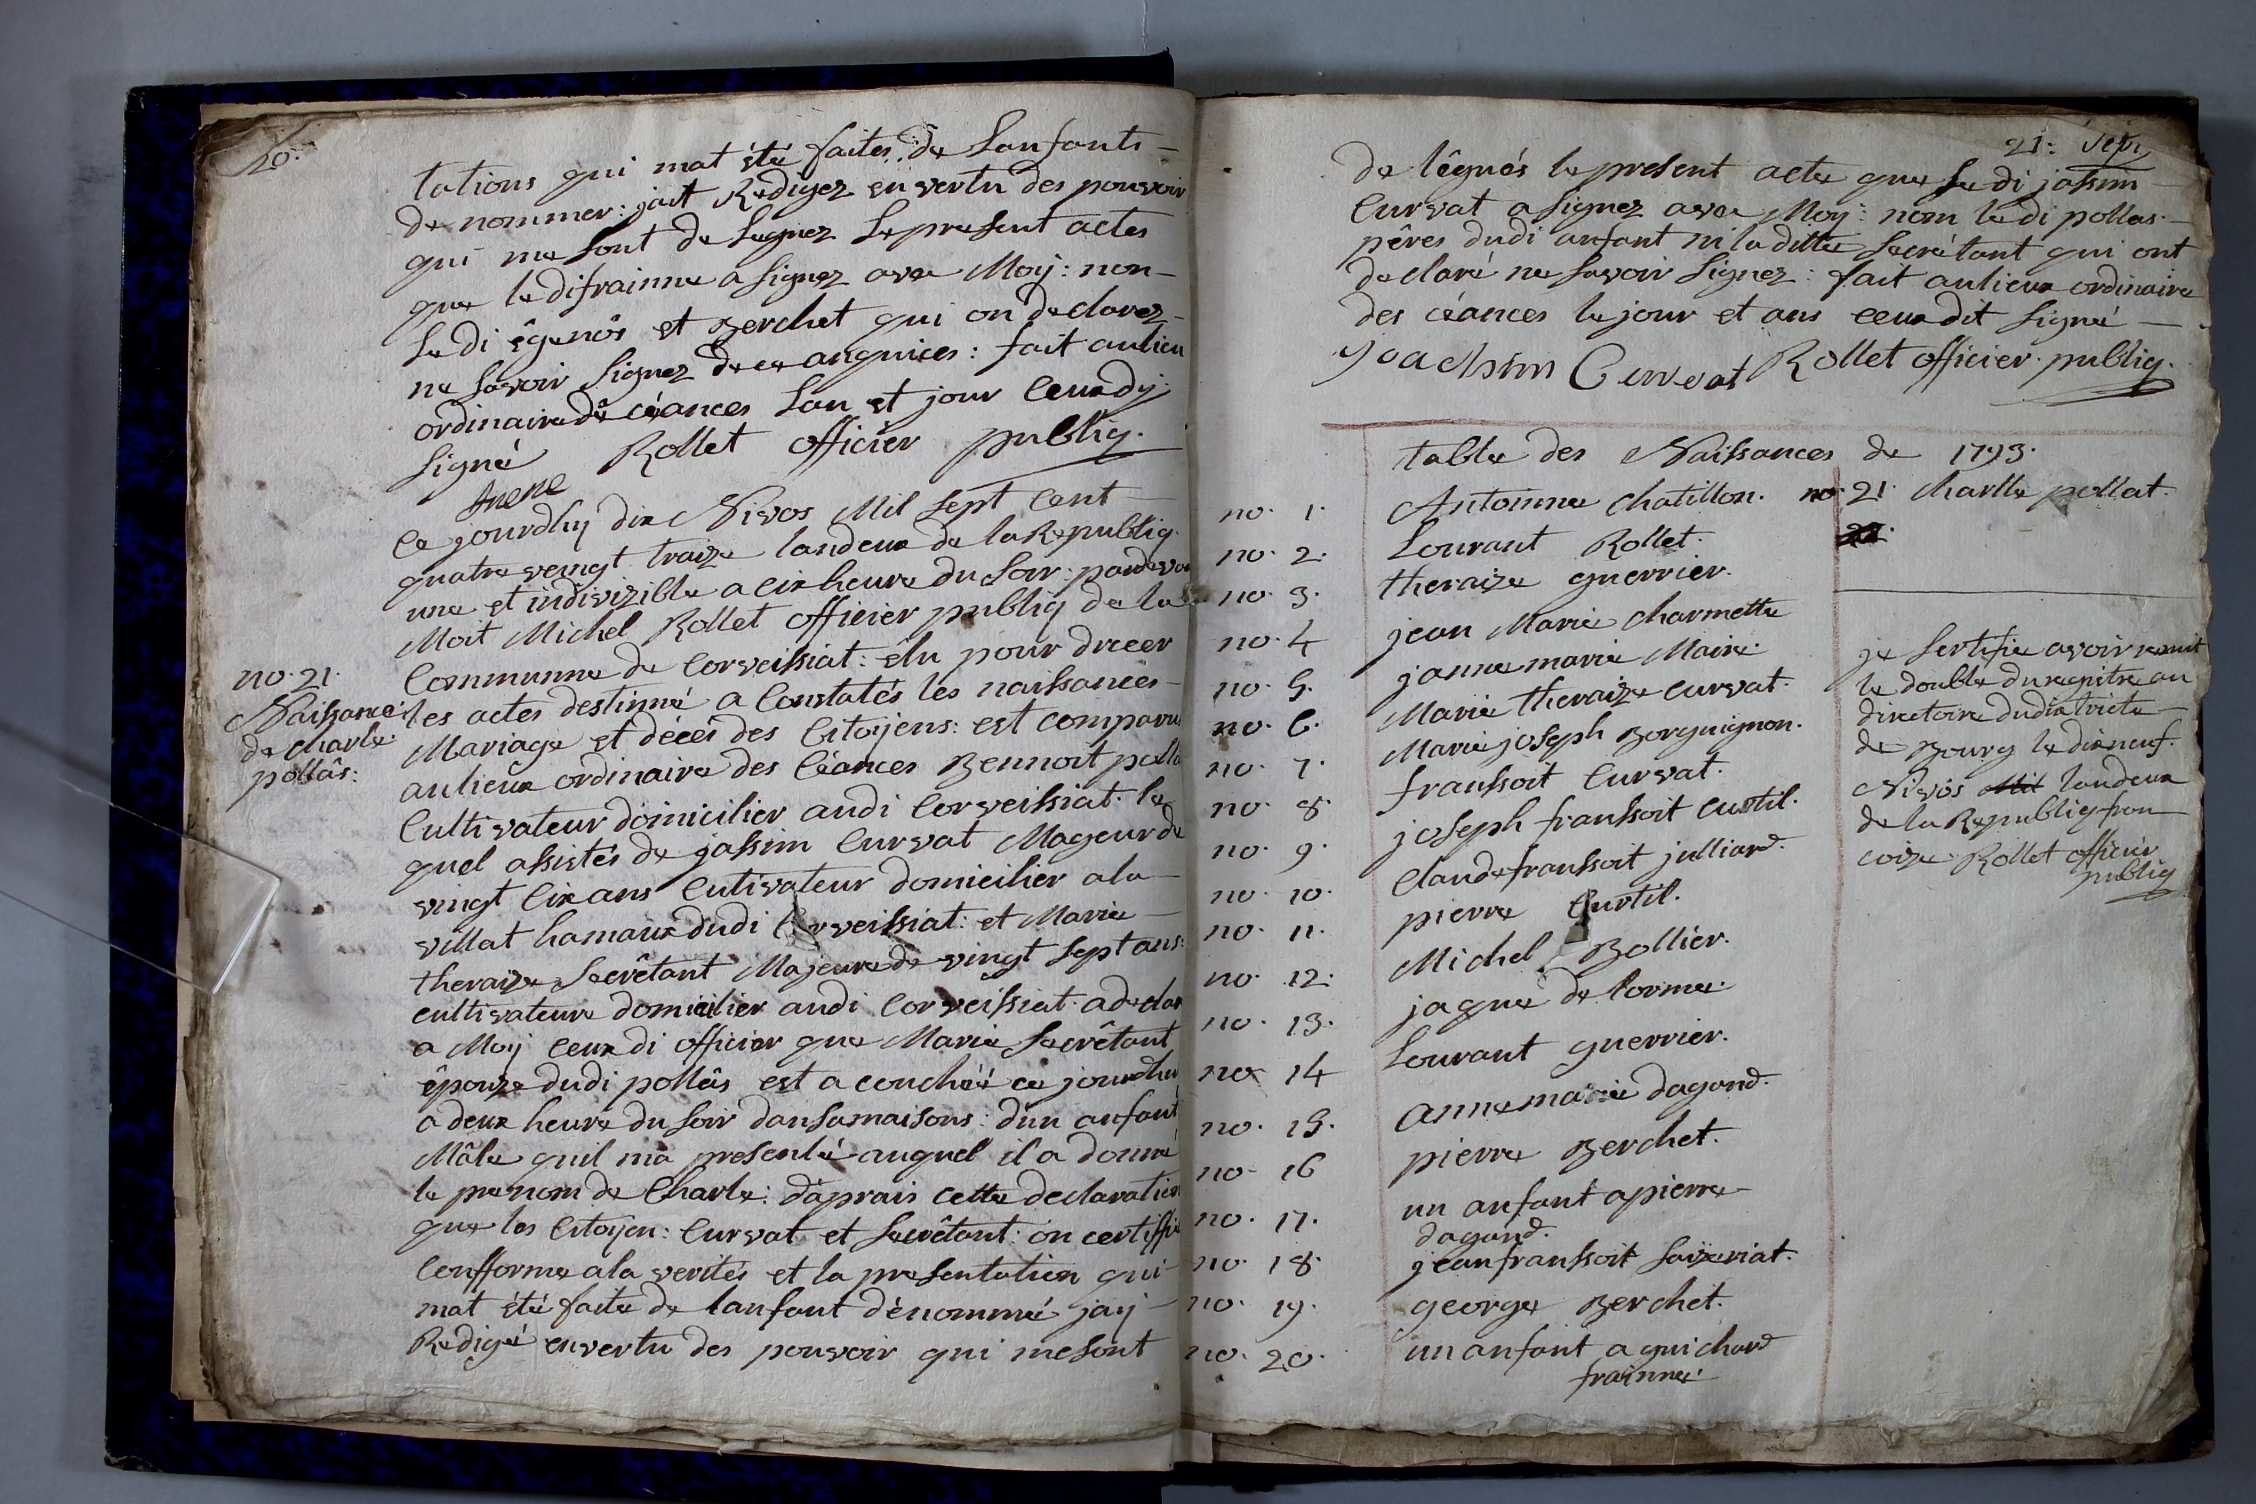 20.
tations qui mat été faites. de Lanfants
de nommer: jait Redigez en vertu des pouvoir
qui me sont de Legnez Le present actes
que le di frainne a signez avec Moy: non
Le di êgenós et Berchet qui on declarez
ne savoir signez de ce anquices: fait aulieu
ordinaire de céances Lan et jour Ceux dy
signé Rollet officier publiq.
frene
Ce jourdhy dix Nivos Mil Sept Cent
quatre veingt traize landeux de la Republiq.
une et indivizible a cix heure du Soir: pardevan
Moit Michel Rollet officier publiq de la
Communne de Corveissiat: élu pour dreeer
no. 21.
Naissance
de charle
pollâs:
les actes destinné a Constatés les naissances
Mariage et décés des Citoyens: est comparu
aulieux ordinaire des Céances Bennoit polla
Cultivateur domicilier audi Corveissiat. le
quel assistés de jassim Curvat Mageur de
vingt cix ans Cutivateur domicilier a la
villat hamaux dudi Corveissiat: et Marie
theraize Secrêtant Majeure de vingt Sept ans:
cultivateure domicilier audi Corveissiat. a declar
a Moy Ceux di officier que Marie Secrêtant
êpouze dudi pollâs est a couchéé ce jourdhu
a deux heure du Soir dans samaisons: d'un anfant
Mâle quil ma presenté auquel il a donné
le prenom de Charle: daprais cette declaration
que les Citoyen: Curvat et Secrêtant: on certiffie
Confforme a la verités et la presentation qui
mat été faite de lanfant dénommé jay
Redigé en vertu des pouvoir qui me sont
21:
de lêgués le present acte que Le di jassim
Curvat a signez avec Moy: nom le di pollas.
pêres dudi anfant ni la ditte Secrétant qui ont
declaré ne savoir signez: fait aulieux ordinaire
des céances le jour et ans ceux dit signé
joachim Curvat Rollet officier. publiq.
table des Naissances de 1793.
no. 1. Antoinne chatillon. no. 21. charlle pollat.
no. 2. Lourant Rollet.
no. 3. theraize guerrier.
no. 4 jean Marie charmette
no. 5. janne marie Maire.
no. 6. Marie theraize curvat.
no. 7. Marie joseph Borguignon.
no. 8. franssoit Curvat.
no. 9. joseph franssoit curtil.
no. 10. Claude franssoit julliard.
no. 11. pierre Curtil.
no. 12. Michel Bollier.
no. 13. jaque de lorme.
no. 14 Lourant guerrier.
no. 15. anne marie dagand.
no. 16 pierre Berchet.
no. 17. un anfant a pierre
dagand.
no. 18. jean franssoit
no. 19. george Berchet.
no. 20. un anfant a guichard
frainne
je Sertifie avoir remit
le double du regitre au
directoire du districte
de Bourg le dix neuf.
Nivôs landeux
de la Republiq fran
coize Rollet officier
publiq